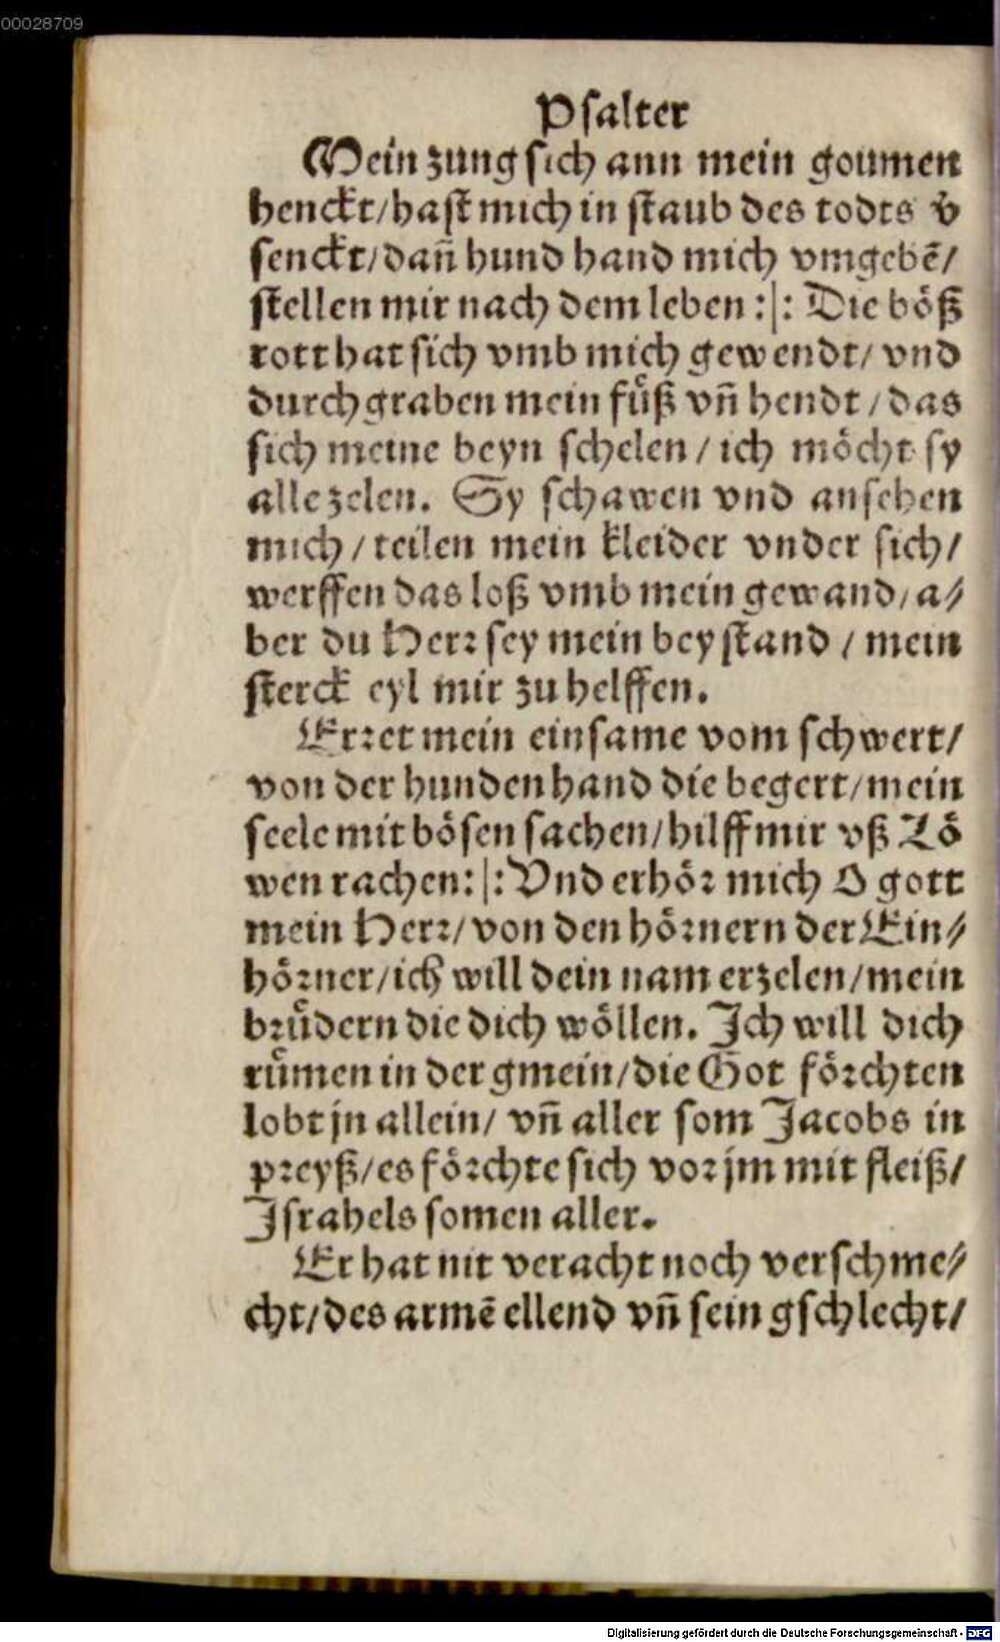 00028709
Psalter
Mein zung sich ann mein goumen
henckt/hast mich in staub des todts v̊
senckt/dañ hund hand mich vmgebē/
stellen mir nach dem leben :|: Die böß
rott hat sich vmb mich gewendt/ vnd
durchgraben mein fuͤß vñ hendt / das
sich meine beyn schelen / ich moͤcht sy
alle zelen. Sy schawen vnd ansehen
mich / teilen mein kleider vnder sich/
werffen das loß vmb mein gewand/ a⸗
ber du Herr sey mein beystand / mein
sterck eyl mir zu helffen.
Erret mein einsame vom schwert/
von der hunden hand die begert/mein
seele mit boͤsen sachen/hilff mir vß Loͤ
wen rachen:|:Vnd erhoͤr mich O gott
mein Herr/ von den hoͤrnern der Ein⸗
hoͤrner/ich will dein nam erzelen/mein
bruͤdern die dich woͤllen. Ich will dich
ruͤmen in der gmein/die Got foͤrchten
lobt jn allein/ vñ aller som Jacobs in
preyß/es foͤrchte sich vor jm mit fleiß/
Israhels somen aller.
Er hat nit veracht noch verschme⸗
cht/des armē ellend vñ sein gschlecht/
Digitalisierung gefördert durch die Deutsche Forschungsgemeinschaft - DFG